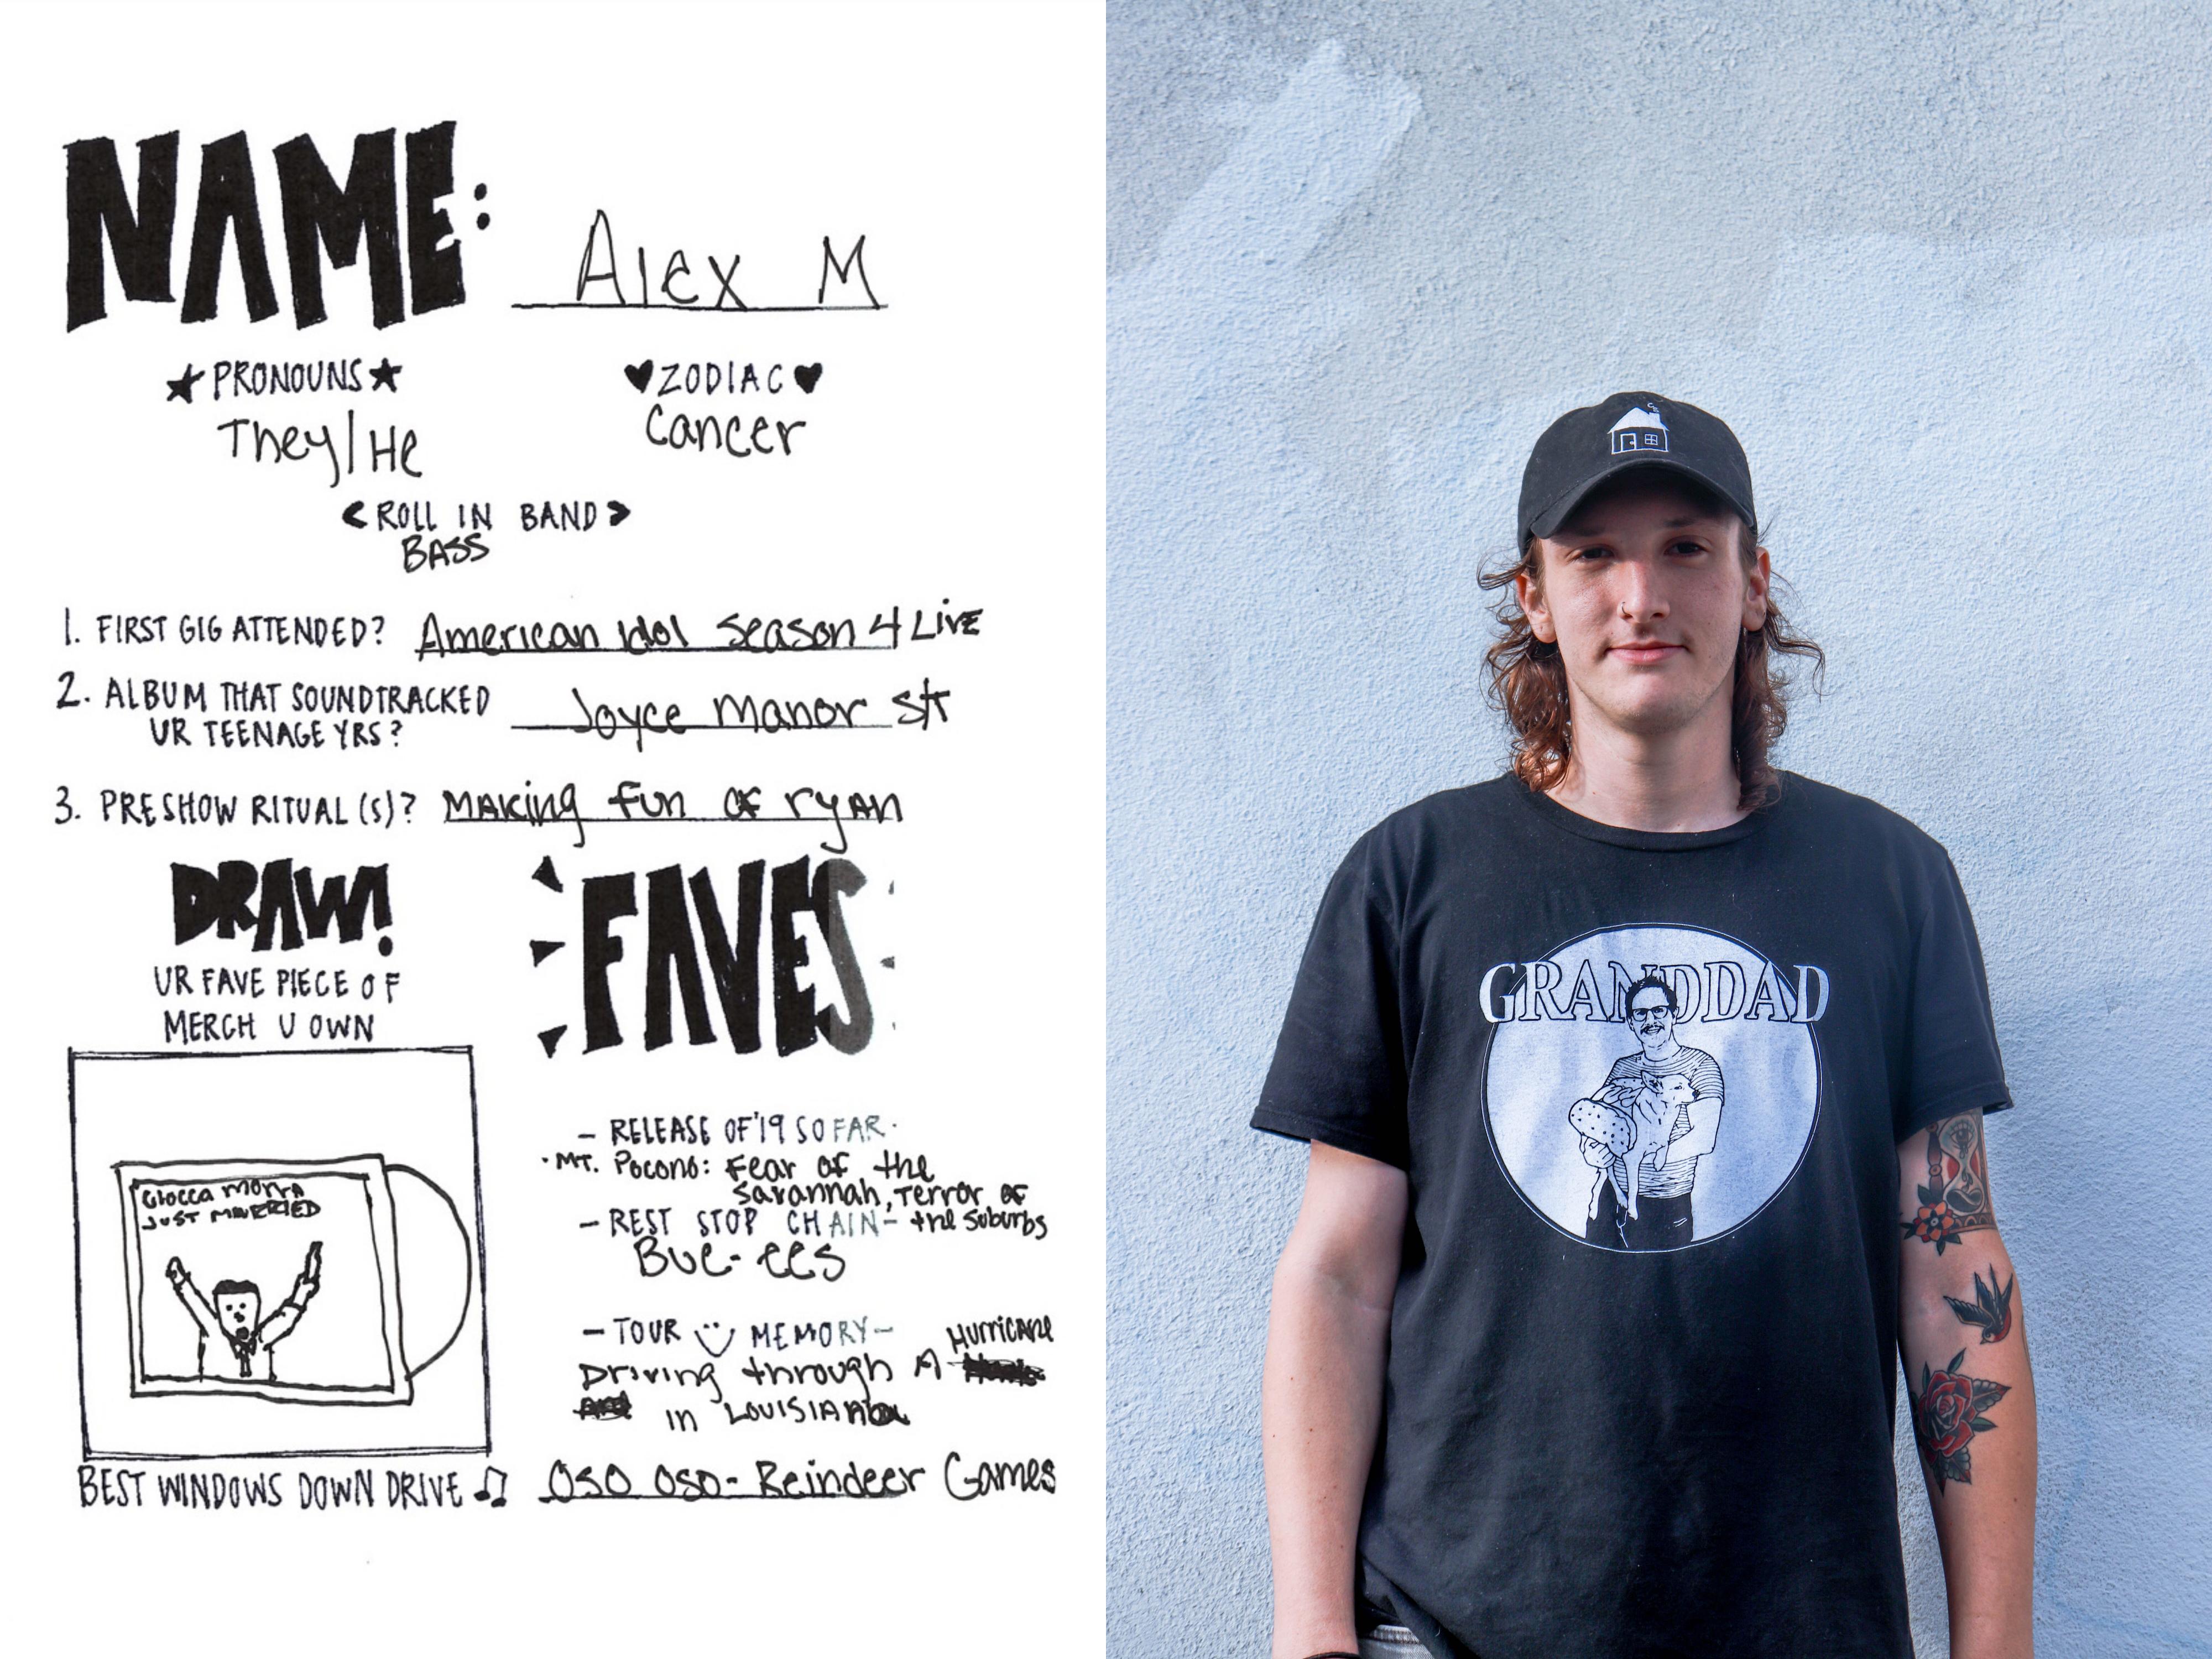 NAME: Alex M
PRONOUNS
They/He
ZODIAC
Cancer
<ROLL IN BAND>
BASS
1. FIRST GIG ATTENDED? American Idol Season 4 LIVE
2. ALBUM THAT SOUNDTRACKED
UR TEENAGE YRS? Joyce Manor S/T
3. PRESHOW RITUAL(S)? MAKing fun of ryan
DRAW!
UR FAVE PIECE OF
MERCH U OWN
Glocca Morra
JUST MARRIED
FAVES
- RELEASE OF '19 SO FAR -
MT. Pocono: Fear of the
Savannah, Terror of
the Suburbs
- REST STOP CHAIN -
Buc-ees
- TOUR MEMORY -
Driving through A Hurricane
in LOUISIANA
BEST WINDOWS DOWN DRIVE ♫ Oso Oso - Reindeer Games
GRANDDAD